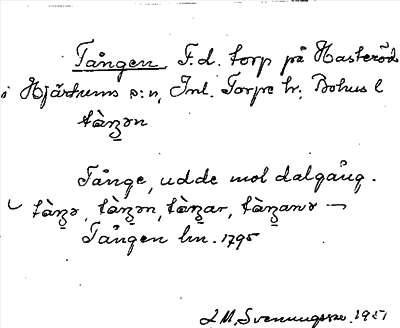 Tången F.d. torp på Hasteröds
i Hjärtums s:n, Inl. Torpe hr, Bohus l
tàŋən
Tånge, udde mot dalgång.
tàŋə, tàŋən, tàŋar, tàŋanə
Tången lm. 1795
Svenungsson. 1951